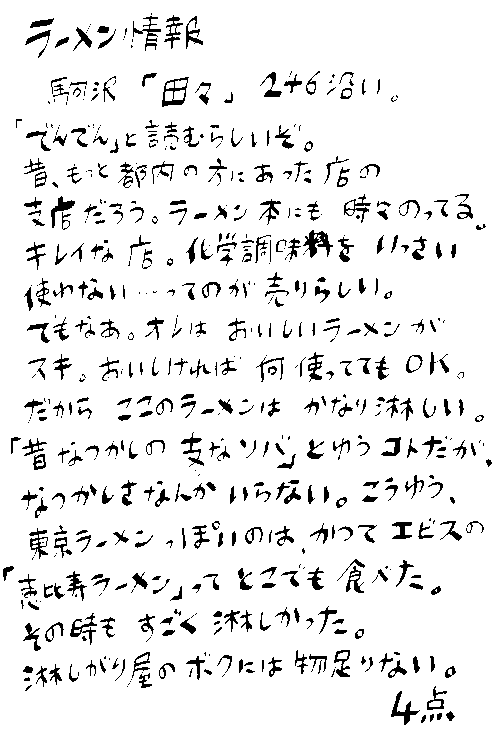 ラーメン情報
駒沢「田々」246沿い。
「でんでん」と読むらしいぞ。
昔、もっと都内の方にあった店の
支店だろう。ラーメン本にも時々のってる。
キレイな店。化学調味料をいっさい
使わない…ってのが売りらしい。
でもなあ。オレはおいしいラーメンが
スキ。おいしければ何使っててもOK。
だからここのラーメンはかなり淋しい。
「昔なつかしの支なソバ」とゆうコトだが、
なつかしさなんかいらない。こうゆう、
東京ラーメンっぽいのは、かつてエビスの
「恵比寿ラーメン」ってとこでも食べた。
その時もすごく淋しかった。
淋しがり屋のボクには物足りない。
4点